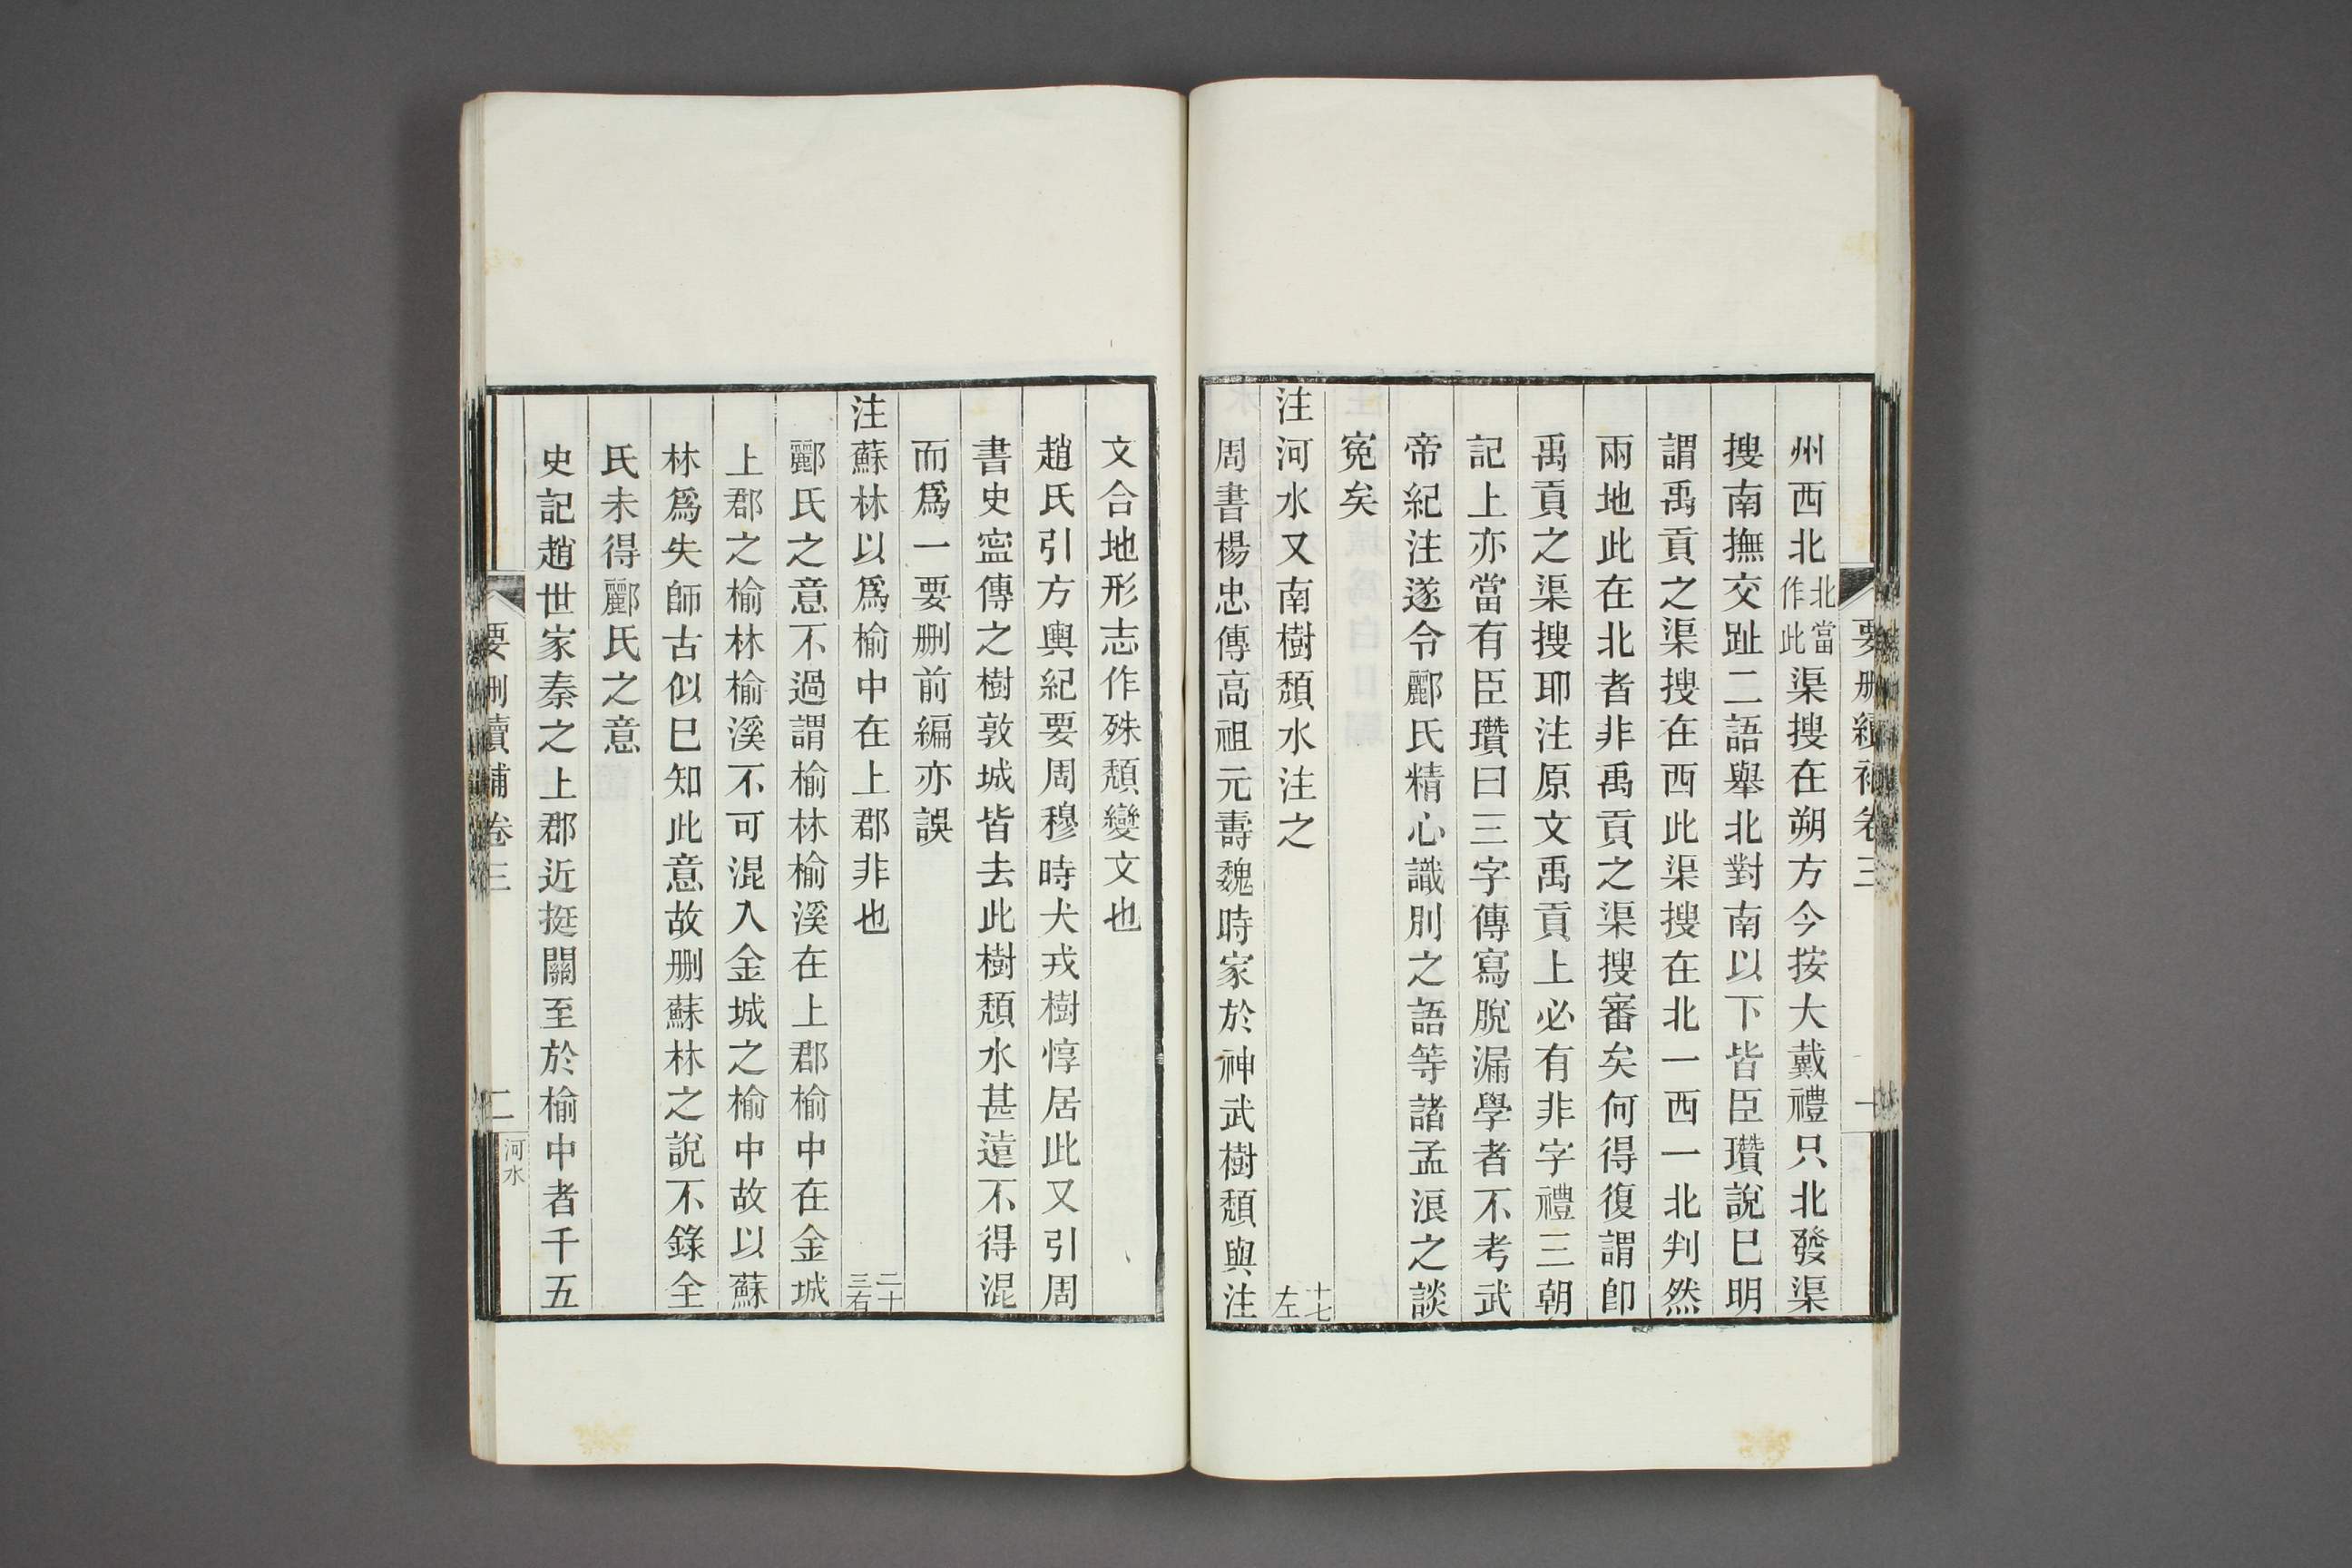 要刪續補卷三
一
州西北北當作此渠搜在朔方今按大戴禮只北發渠
搜南撫交趾二語舉北對南以下皆臣瓚說已明
謂禹貢之渠搜在西此渠搜在北一西一北判然
兩地此在北者非禹貢之渠搜審矣何得復謂卽
禹貢之渠搜耶注原文禹貢上必有非字禮三朝
記上亦當有臣瓚曰三字傳寫脫漏學者不考武
帝紀注遂令酈氏精心識別之語等諸孟浪之談
冤矣
注河水又南樹頹水注之十七左
周書楊忠傳高祖元壽魏時家於神武樹頹與注
文合地形志作殊頹變文也
趙氏引方輿紀要周穆時犬戎樹惇居此又引周
書史寍傳之樹敦城皆去此樹頹水甚遠不得混
而爲一要刪前編亦誤
注蘇林以爲榆中在上郡非也二十三右
酈氏之意不過謂榆林榆溪在上郡榆中在金城
上郡之榆林榆溪不可混入金城之榆中故以蘇
林爲失師古似已知此意故刪蘇林之說不錄全
氏未得酈氏之意
史記趙世家秦之上郡近挺關至於榆中者千五
要刪續補卷三
二
河水